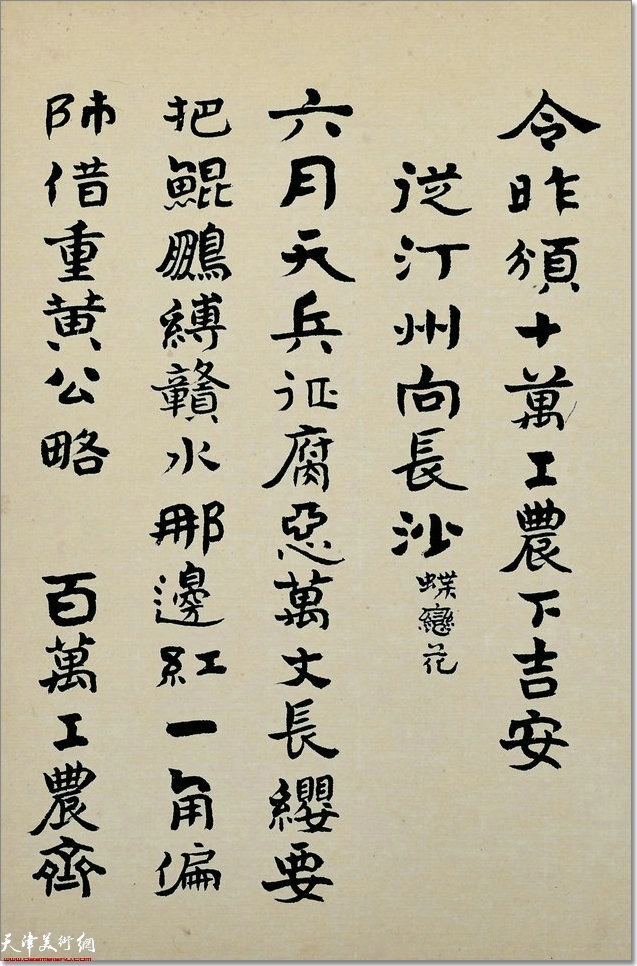 令昨頒十萬工農下吉安
從汀州向長沙蝶戀花
六月天兵征腐惡萬丈長纓要
把鯤鵬縛贛水那邊紅一角偏
師借重黃公略 百萬工農齊
天津美術網